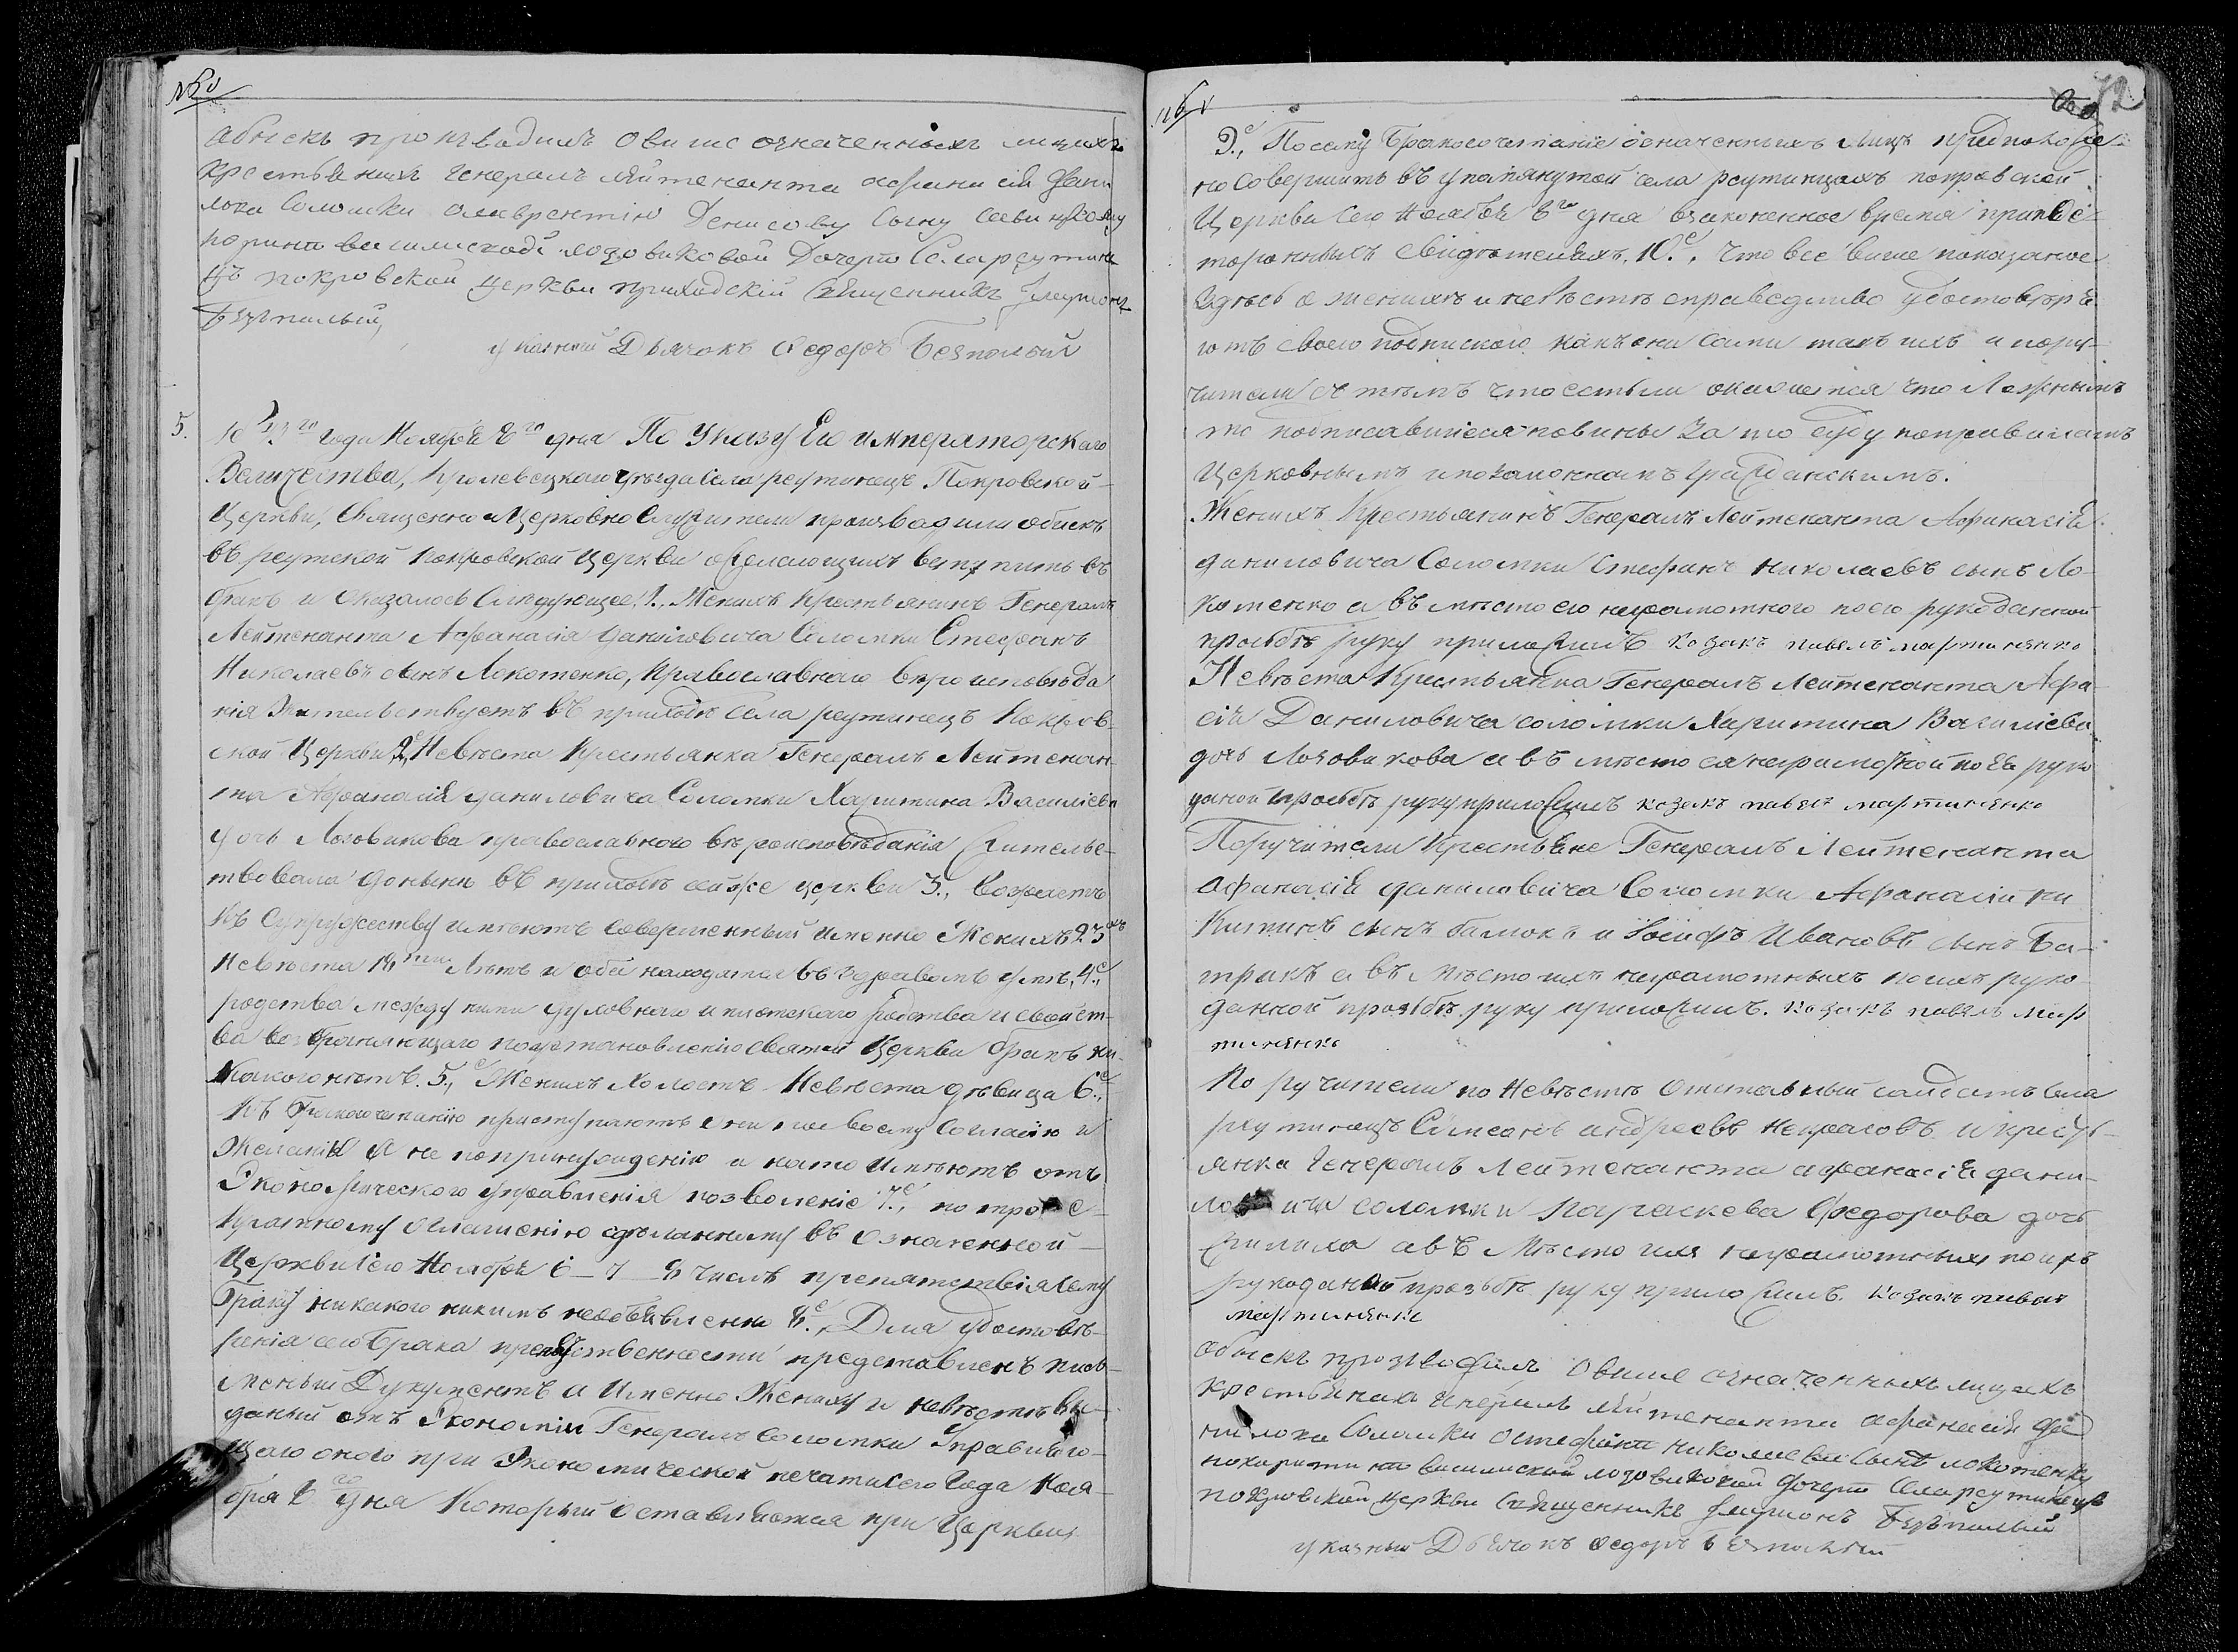 обыскъ производилъ о више означенныхъ лицахъ
крестьянинъ генералъ лейтенанта афанасія дани
лова Соломки Лаврентію Денисову сыну
василиевой лозовиковой дочерю Села реутинц
ць покровской церкви приходскій Священникъ
Безпалый
указный Дьячокъ Федоръ Безполый
5.
года Ноября 8го дня По Указу Его императорскаго
Величества, Кролевецкаго уезда села реутинецъ Покровской
Церкви, Священно Церковно Служители производили обыскъ
въ реутской покровской церкви о желающихъ вступить въ
бракъ и оказалось следующее, 1., Женихъ крестьянинъ Генералъ
Лейтенанта Афанасія Даниловича Соломки Стефанъ
Николаевъ сынъ Локотенко, православнаго вероисповѣда
нія Жительствуетъ въ приходѣ села реутинецъ Покров-
ской Церкви 2е Невѣста крестьянка Генералъ Лейтенан-
та Афанасія даниловича Соломки Харитина Василіева
дочь Лозовикова православного вѣроисповѣданія Жительс-
твовала доныне въ приходѣ сей же церкви 3., возрастъ
къ супружеству имѣютъ совершенный именно Женихъ 23
Невѣста 18 Лѣтъ и оба находятся въ здравомъ умѣ, 4е,
родства между ними духовнаго и плотскаго родства и свойст-
ва возбраняющаго по установленію святой Церкви бракъ ни-
какого нѣтъ. 5.е Женихъ Холостъ Невѣста дѣвица 6е,
Къ бракосочетанію приступаютъ они по своему согласію и
желанію а не по принужденію и на то имѣютъ отъ
Экономическаго управленія позволеніе 7.е, по трое-
кратному оглашенію сдѣланному въ означенной
Церкви сего Ноября 6 - 7 8 числъ препятствія сему
браку никакого никимъ необъявленно 8.е, Для удостовѣ-
ренія сего брака представленъ пись-
менный Дукументъ а именно Жениху и невѣстѣ вы-
даный отъ Экономіи Генералъ Соломки Управляю-
щаго оною при Экономической печати сего года Ноя-
бря дня Который оставляется при Церкви
72
9.е, Посему бракосочетаніе означенныхъ лицъ предположе-
но совершить въ упомянутой села реутинцахъ покровской
Церкви сего Ноября 8го дня взаконенное время при пос-
торонныхъ свидѣтеляхъ, 10.е, что все више показаное
здѣсь о женихѣ и невѣстѣ справедливо удостовѣря-
ютъ своею подпискою какъ они сами такъ ихъ и пору-
чители съ тѣмъ что естьли окажется что Ложнымъ
то подписавшіеся повины за то суду по правиламъ
церковнымъ и по законнамъ гражданскимъ.
Женихъ Крестьянинъ Генералъ Лейтенанта Афанасія
даниловича Соломки Стефанъ николаевъ сынъ Ло-
котенко а въ мѣсто его неграмотного по его рукоданной
прозьбѣ руку приложилъ козакъ павелъ мартиненко
Невѣста Крестьянка Генералъ Лейтенанта Афа-
сія Даниловича соломки Харитина Василіева
дочь Лозовикова а въ мѣсто ея неграмотной по Ея руко
даной прозьбѣ руку приложилъ козакъ павелъ мартиненко
Поручители Крестьяне Генералъ Лейтенанта
Афанасія даниловича Соломки Афанасій ни
китинъ сынъ и Іосифъ Ивановъ сынъ Ба-
тракъ а въ мѣсто ихъ неграмотныхъ по ихъ руко-
данной прозьбѣ руку приложилъ. козакъ павелъ мар
тиненко
Поручители по Невѣстѣ Отставный салдатъ села
реутинецъ Симеонъ андреевъ и кресть-
янка Генералъ Лейтенанта афанасія дани-
ловича соломки параскева Федорова дочь
а въ Мѣсто ихъ неграмотныхъ по ихъ
рукоданой прозьбѣ руку приложилъ. козакъ павелъ
мартиненко
обыскъ производилъ о више означенныхъ лицахъ
крестьянахъ генералъ лейтенанта афанасія да
нилова Соломки о стефани николаеви сынѣ локотенку
василиевой лозовиковой дочерю Села реутинець
покровской церкви Священникъ Безпалый
указный Дьячокъ Федоръ Безпалый